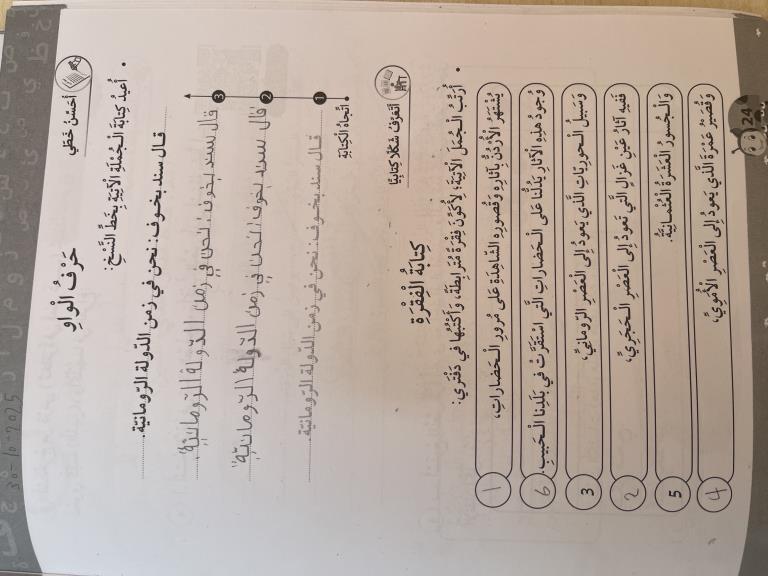 30-10-2025
أُحَسِّنُ خَطّي
حَرْفُ الْواوِ
• أُعيدُ كِتابَةَ الْجُمْلَةِ الْآتِيَةِ بِخَطِّ النَّسْخِ:
قال سند بخوف: نحن في زمن الدّولة الرّومانيّة.
قال سند بخوف: نحن في زمن الدّولة الرّومانيّة.
3
قال سند بخوف: نحن في زمن الدّولة الرّومانيّة
2
قال سند بخوف: نحن في زمن الدّولة الرّومانيّة.
1
اتّجاهُ الْكِتابَةِ
أَتَعَرَّفُ شَكْلًا كِتابِيًّا
كِتابَةُ الْفِقْرَةِ
• أُرَتِّبُ الْجُمَلَ الْآتِيَةَ؛ لِأُكَوِّنَ فِقْرَةً مُتَرابِطَةً، وَأَكْتُبُها في دَفْتَري:
يُشْتَهَرُ الْأُرْدُنُّ بِآثارِهِ وَقُصورِهِ الشّاهِدَةِ عَلى مُرورِ الْحَضاراتِ، 1
وُجودُ هذِهِ الْآثارِ يَدُلُّنا عَلى الْحَضاراتِ الَّتي اسْتَقَرَّتْ في بَلَدِنا الْحَبيبِ. 6
وَسَبيلُ الْحورِيّاتِ الَّذي يَعودُ إِلى الْعَصْرِ الرّومانِيِّ، 3
فَفيهِ آثارُ عَيْنِ غَزالٍ الَّتي تَعودُ إِلى الْعَصْرِ الْحَجَرِيِّ، 2
وَالْجُسورُ الْعَشَرَةُ الْعُثْمانِيَّةُ. 5
وَقُصَيْرُ عَمْرَةَ الَّذي يَعودُ إِلى الْعَصْرِ الْأُمَوِيِّ، 4
24